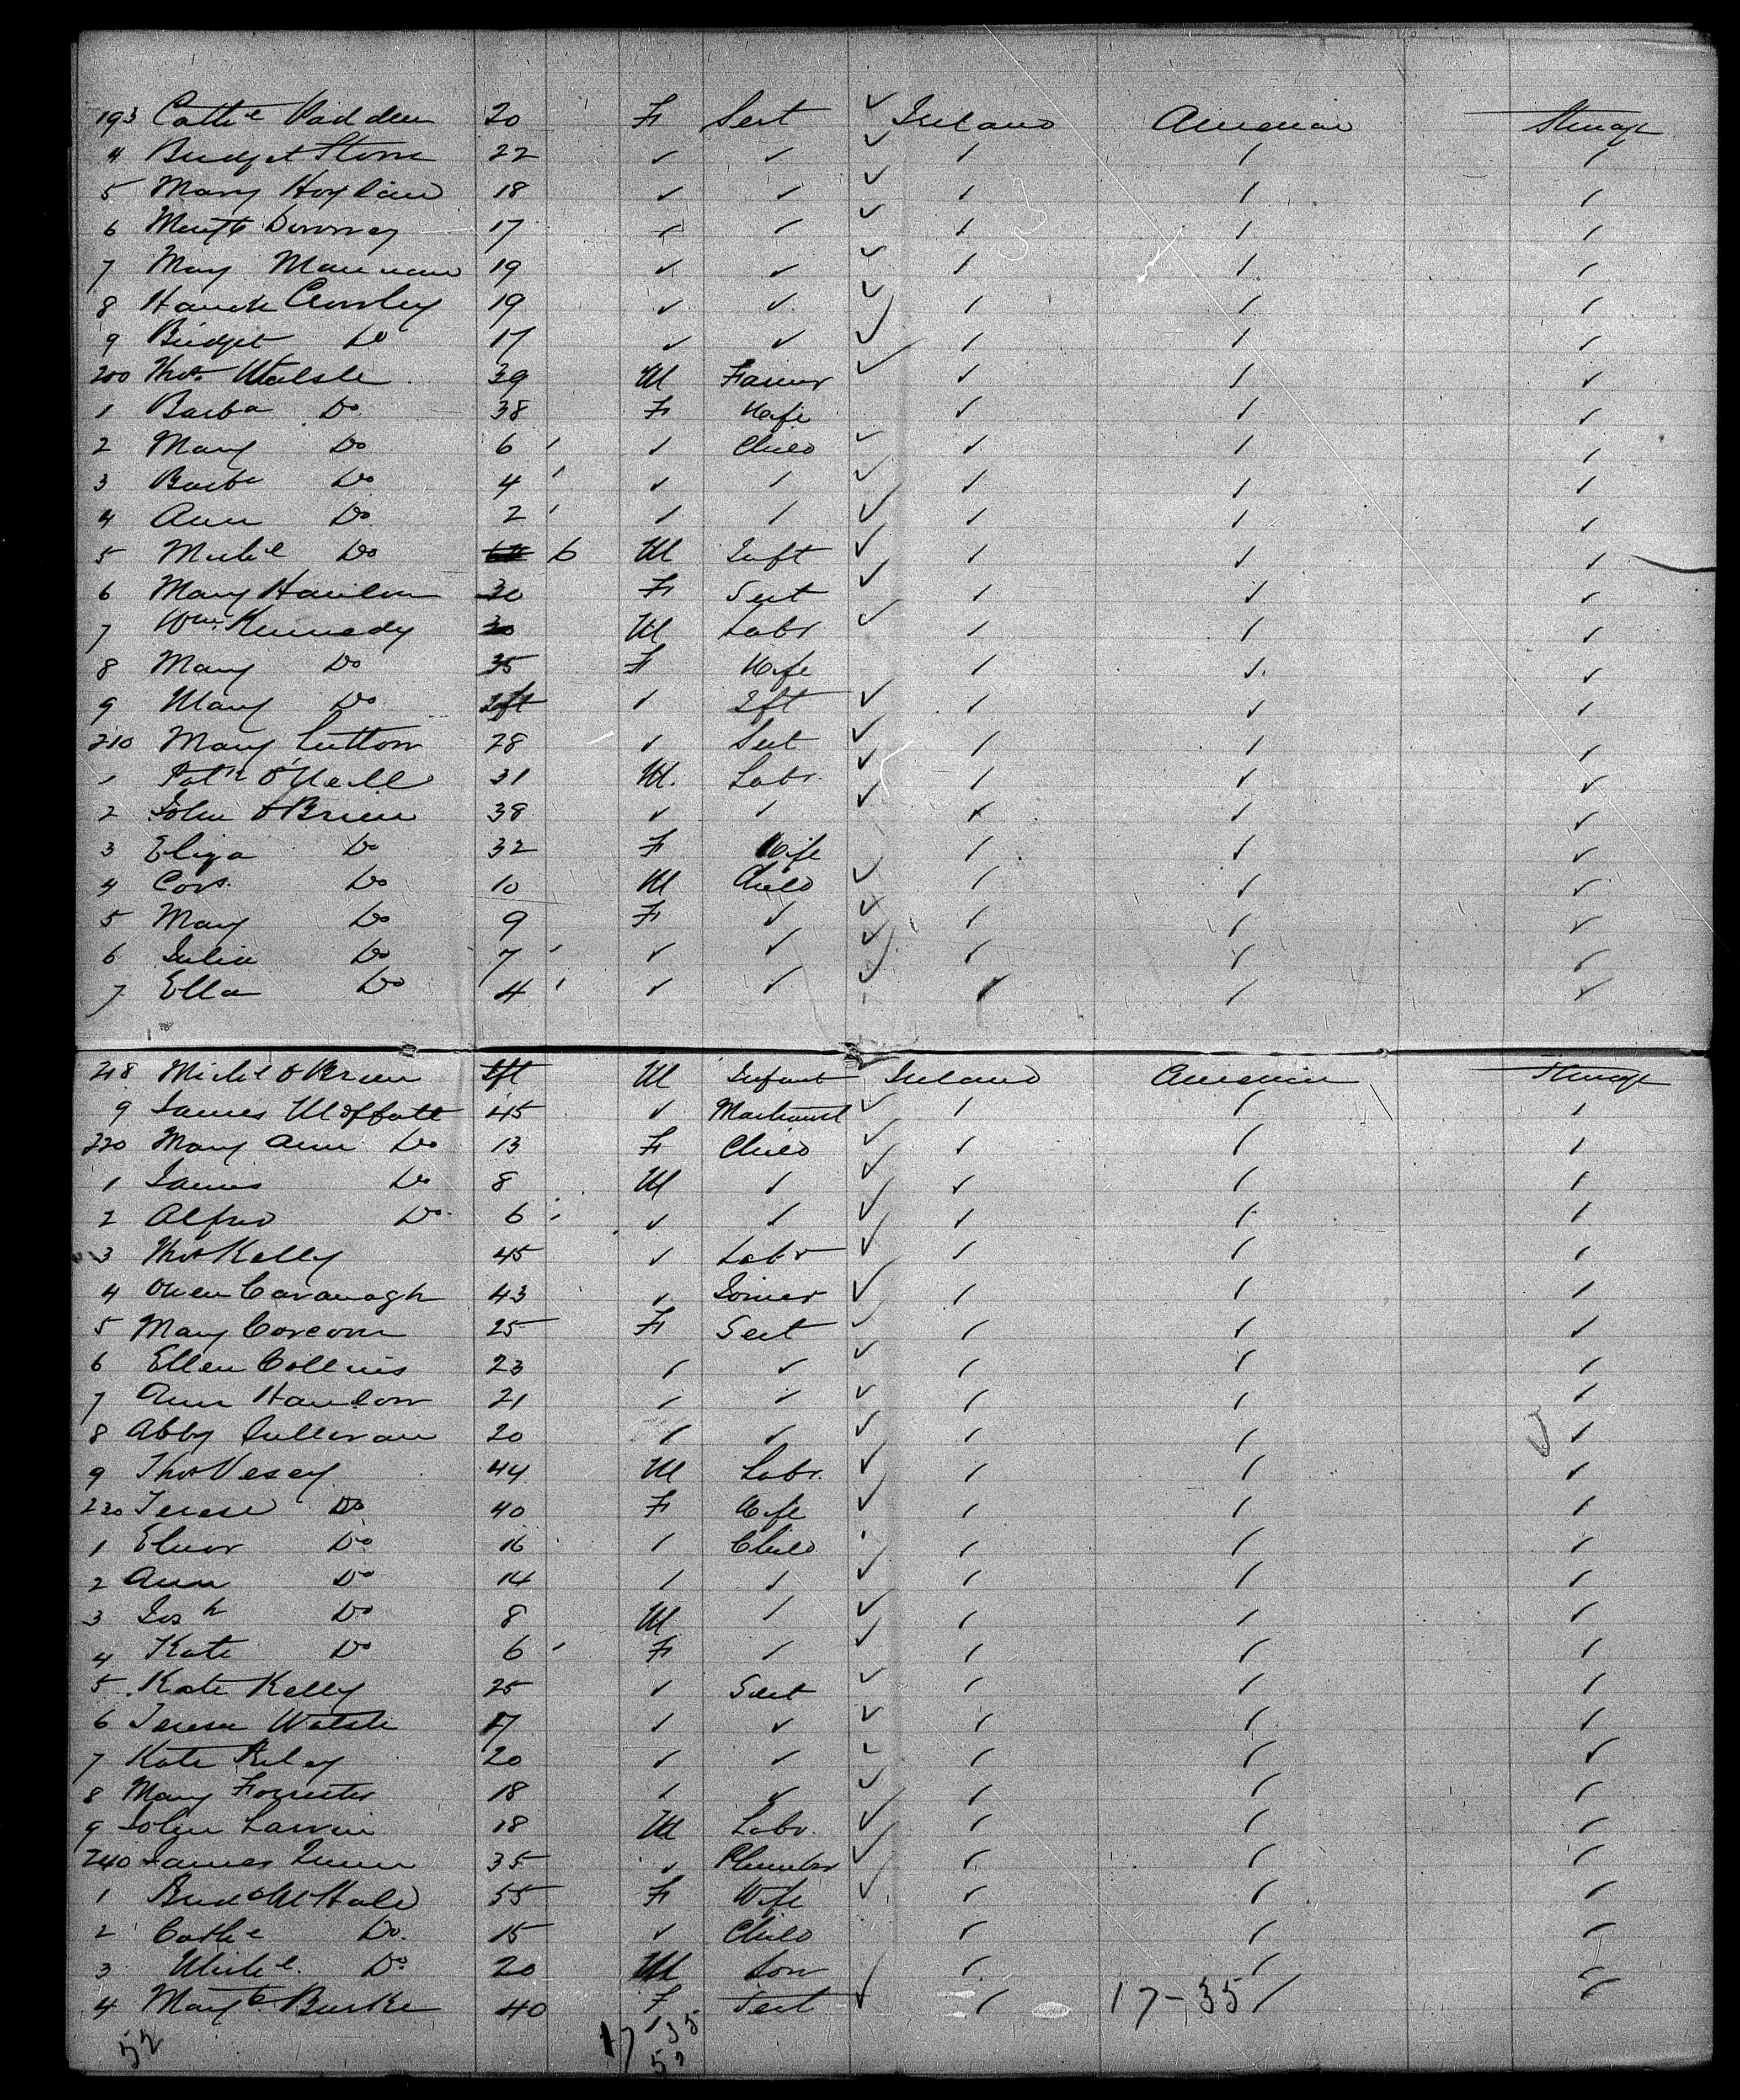 193 Cathe Padden 20 F Sert ✓ Ireland American Steerage
4 Bridget Stone 22 ✓ ✓ ✓ ✓ ✓ ✓
5 Mary 18 ✓ ✓ ✓ ✓ ✓ ✓
6 17 ✓ ✓ ✓ ✓ ✓ ✓
7 Mary 19 ✓ ✓ ✓ ✓ ✓ ✓
8 Hanah Crowley 19 ✓ ✓ ✓ ✓ ✓ ✓
9 Bridget Do 17 ✓ ✓ ✓ ✓ ✓ ✓
200 Thos Walsh 39 M Farmer ✓ ✓ ✓ ✓
1 Barba Do 38 F Wife ✓ ✓ ✓
2 Mary Do 6 ✓ Child ✓ ✓ ✓ ✓
3 Barba Do 4 ✓ ✓ ✓ ✓ ✓ ✓
4 Ann Do 2 ✓ ✓ ✓ ✓ ✓ ✓
5 Michl Do 6 M Inft ✓ ✓ ✓ ✓
6 Mary Hanlon 30 F Sert ✓ ✓ ✓ ✓
7 Wm Kennedy 30 M Labr ✓ ✓ ✓ ✓
8 Mary Do 35 F Wife ✓ ✓ ✓
9 Mary Do Ift ✓ Ift ✓ ✓ ✓ ✓
210 Mary Sutton 28 ✓ Sert ✓ ✓ ✓ ✓
1 Patk O'Neill 31 M. Labr. ✓ ✓ ✓ ✓
2 John O'Brien 38 ✓ ✓ ✓ ✓ ✓ ✓
3 Eliza Do 32 F Wife ✓ ✓ ✓
4 Cors. Do 10 M Child ✓ ✓ ✓ ✓
5 Mary Do 9 F ✓ ✓ ✓ ✓ ✓
6 Julia Do 7 ✓ ✓ ✓ ✓ ✓ ✓
7 Ella Do 4 ✓ ✓ ✓ ✓ ✓ ✓
218 Michl O'Brien Ift M Infant Ireland American Steerage
9 James Moffatt 45 ✓ Merchant ✓ ✓ ✓ ✓
220 Mary Ann Do 13 F Child ✓ ✓ ✓ ✓
1 James Do 8 M ✓ ✓ ✓ ✓ ✓
2 Alfred Do 6 ✓ ✓ ✓ ✓ ✓ ✓
3 Thos Kelly 45 ✓ Labr ✓ ✓ ✓ ✓
4 Owen Cavanagh 43 ✓ Joiner ✓ ✓ ✓ ✓
5 Mary Corcoran 25 F Sert ✓ ✓ ✓ ✓
6 Ellen Collins 23 ✓ ✓ ✓ ✓ ✓ ✓
7 Ann Hanlon 21 ✓ ✓ ✓ ✓ ✓ ✓
8 Abby Sullivan 20 ✓ ✓ ✓ ✓ ✓ ✓
9 Thos Vesey 44 M Labr. ✓ ✓ ✓ ✓
230 Terese Do 40 F Wife ✓ ✓ ✓ ✓
1 Elnor Do 16 ✓ Child ✓ ✓ ✓ ✓
2 Ann Do 14 ✓ ✓ ✓ ✓ ✓ ✓
3 Josh Do 8 M ✓ ✓ ✓ ✓ ✓
4 Kate Do 6 F ✓ ✓ ✓ ✓ ✓
5 Kate Kelly 25 ✓ Sert ✓ ✓ ✓ ✓
6 Teresa Walsh 17 ✓ ✓ ✓ ✓ ✓ ✓
7 Kate Riley 20 ✓ ✓ ✓ ✓ ✓ ✓
8 Mary Forrester 18 ✓ ✓ ✓ ✓ ✓ ✓
9 John Larvin 18 M Labr. ✓ ✓ ✓ ✓
240 James Quinn 35 ✓ Plumber ✓ ✓ ✓ ✓
1 McHale 55 F Wife ✓ ✓ ✓ ✓
2 Cathe Do. 15 ✓ Child ✓ ✓ ✓
3 Michl. Do 20 M Son ✓ ✓ ✓
4 Margt Burke 40 F Sert ✓ ✓ 17-35 ✓ ✓
52 17 35
52